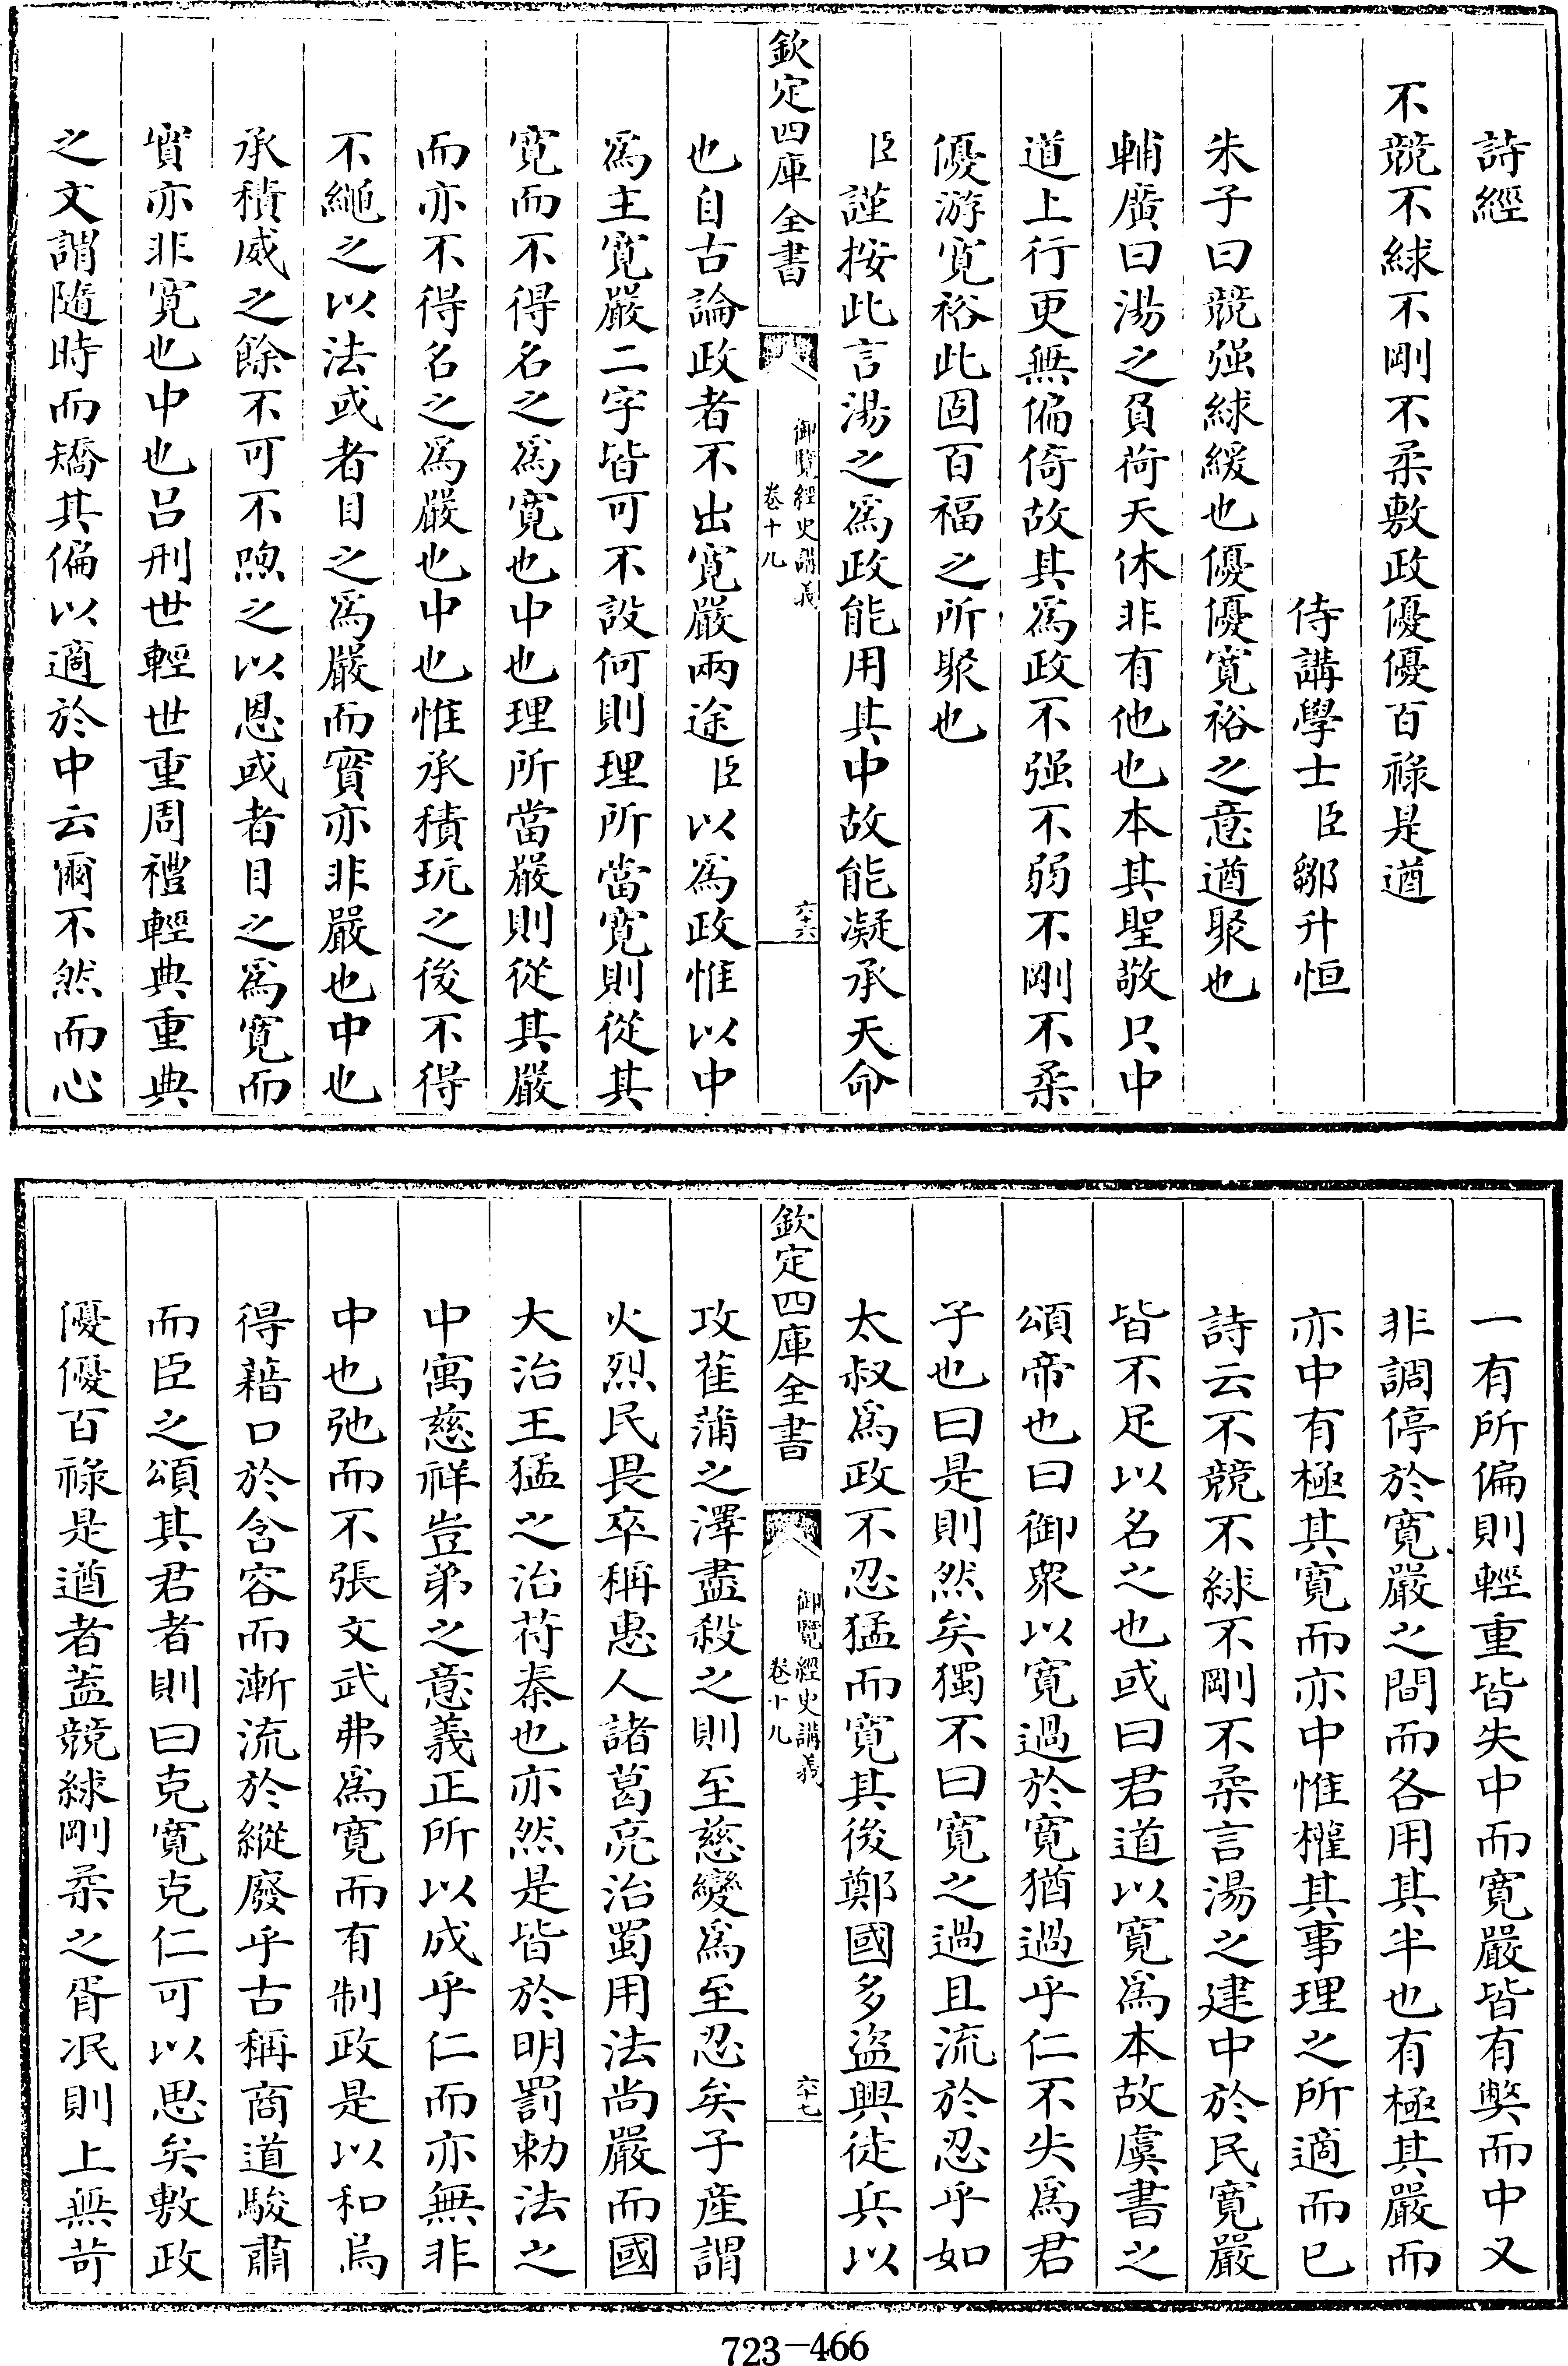 詩經
不競不絿不剛不柔敷政優優百祿是遒
侍講學士臣鄒升恒
朱子曰競强絿緩也優優寛裕之意遒聚也
輔廣曰湯之負荷天休非有他也本其聖敬只中
道上行更無偏倚故其為政不强不弱不剛不柔
優游寛裕此固百福之所聚也
臣謹按此言湯之為政能用其中故能凝承天命
欽定四庫全書
御覽經史講義
卷十九
六十六
也自古論政者不出寛嚴兩途臣以為政惟以中
為主寛嚴二字皆可不設何則理所當寛則從其
寛而不得名之為寛也中也理所當嚴則從其嚴
而亦不得名之為嚴也中也惟承積玩之後不得
不繩之以法或者目之為嚴而實亦非嚴也中也
承積威之餘不可不煦之以恩或者目之為寛而
實亦非寛也中也呂刑世輕世重周禮輕典重典
之文謂隨時而矯其偏以適於中云爾不然而心
一有所偏則輕重皆失中而寛嚴皆有弊而中又
非調停於寛嚴之間而各用其半也有極其嚴而
亦中有極其寛而亦中惟權其事理之所適而已
詩云不競不絿不剛不柔言湯之建中於民寛嚴
皆不足以名之也或曰君道以寛為本故虞書之
頌帝也曰御衆以寛過於寛猶過乎仁不失為君
子也曰是則然矣獨不曰寛之過且流於忍乎如
太叔為政不忍猛而寛其後鄭國多盜興徒兵以
欽定四庫全書
御覽經史講義
卷十九
六十七
攻萑蒲之澤盡殺之則至慈變為至忍矣子産謂
火烈民畏卒稱惠人諸葛亮治蜀用法尚嚴而國
大治王猛之治苻秦也亦然是皆於明罰勅法之
中寓慈祥豈弟之意義正所以成乎仁而亦無非
中也弛而不張文武弗為寛而有制政是以和烏
得藉口於含容而漸流於縱廢乎古稱商道駿肅
而臣之頌其君者則曰克寛克仁可以思矣敷政
優優百祿是遒者蓋競絿剛柔之胥泯則上無苛
723-466